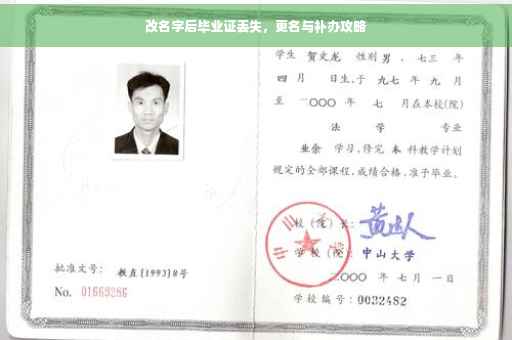 改名字后毕业证丢失，更名与补办攻略
学生 贺文龙 性别 男，七三 年
四 月 日生，于 九七 年 九 月
至 二〇〇〇 年 七 月在本校(院)
法 学 专业
业余 学习，修完 本 科教学计划
规定的全部课程，成绩合格，准予毕业。
校 (院) 长：
学 校 (院)： 中山大学
二〇〇〇 年 七 月 一 日
学校编号：0032482
批准文号：教直[1993]8号
No. 01669286